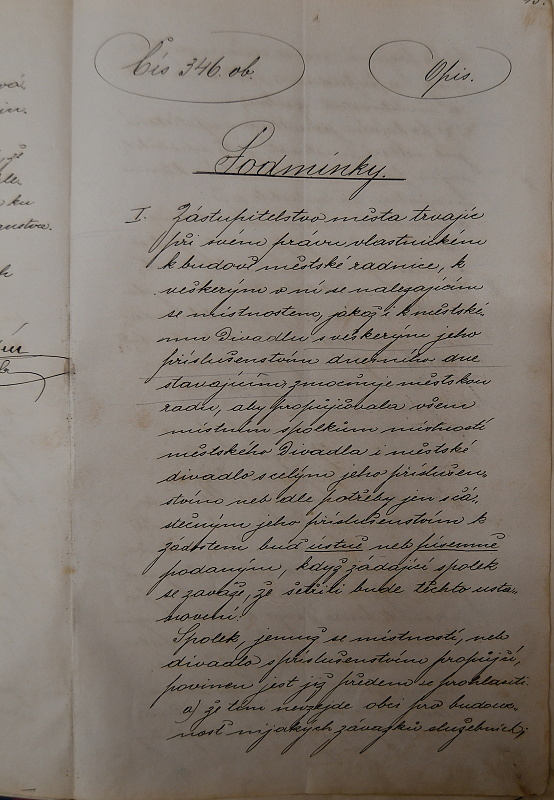 Čís 346. ob.
Opis.
Podmínky.
I. Zástupitelstvo města trvajíc
při svém právu vlastnickém
k budově městské radnice, k
veškerým v ní se nalezajícím
se místnostem, jakož i k městské-
mu Divadlu s veškerým jeho
příslušenstvím dnešního dne
stavajícím, zmocňuje městskou
radu, aby propůjčovala všem
místním spolkům místností
městského Divadla i městské
divadlo s celým jeho příslušen-
stvím neb dle potřeby jen s čá-
stečným jeho příslušenstvím k
žádostem buď ústně neb písemně
podaným, když žádající spolek
se zaváže, že šetřiti bude těchto usta-
novení:
Spolek, jemuž se místností, neb
divadlo s příslušenstvím propůjčí,
povinen jest již předem se prohlásiti
a) že tím nevzejde obci pro budouc-
nosť nijakých závazků služebních;